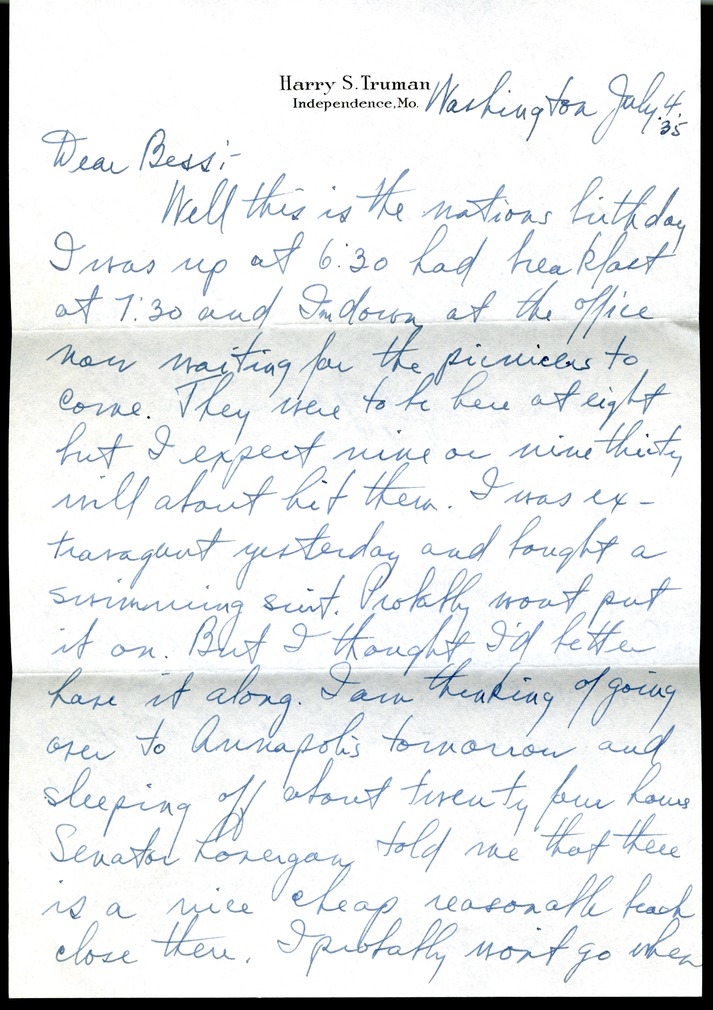 Harry S. Truman
Independence, Mo.
Washington July 4.
35
Dear Bess:-
Well this is the nations birthday
I was up at 6:30 had breakfast
at 7:30 and I'm down at the office
now waiting for the picnicers to
come. They were to be here at eight
but I expect nine or nine thirty
will about hit them. I was ex-
travagant yesterday and bought a
swimming suit. Probably wont put
it on. But I thought I'd better
have it along. I am thinking of going
over to Annapolis tomorrow and
sleeping off about twenty four hours
Senator Lonergan told me that there
is a nice cheap reasonable beach
close there. I probably wont go when